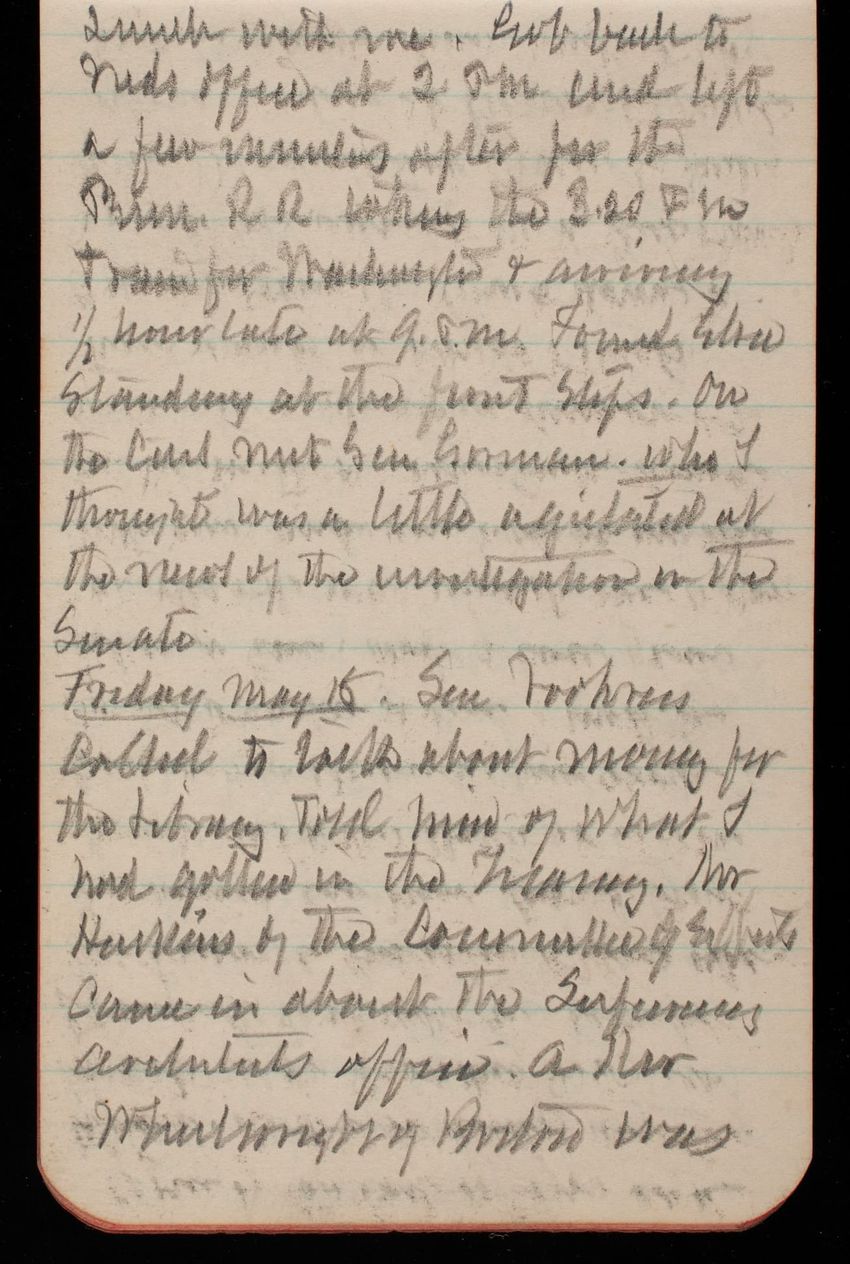 Lunch with me. Got back to
Neds office at 2 P M and left
a few minutes after for the
Penn. R R taking the 3.20 P M
Train for Washington & arriving
1/2 hour late at 9. P. M. Found Eliza
Standing at the front Steps. On
the Cars met Sen Gorman. who I
thought was a little agitated at
the news of the investigation in the
Senate
Friday May 15. Sen Voohrees
Called to talk about money for
the Library. Told him of what I
had gotten in the Treasury. Mr
Haskins of the Committee of Experts
Came in about the Supervising
Architects office. A Mr
Wheelwright of Boston was